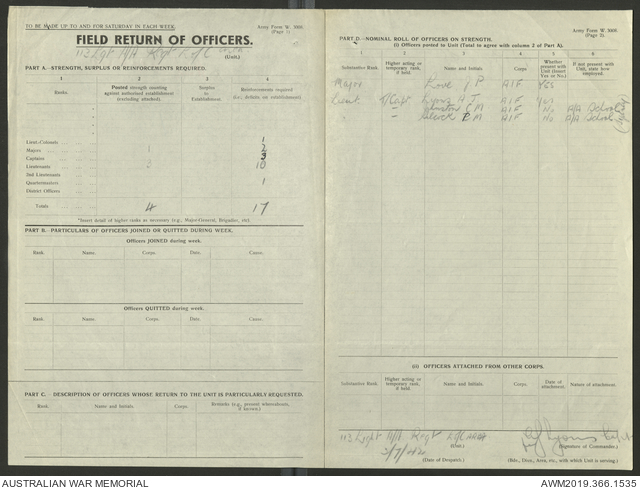 TO BE MADE UP TO AND FOR SATURDAY IN EACH WEEK.
Army Form W. 3008.
(Page 1).
FIELD RETURN OF OFFICERS.
113 Lgt A/A Regt R/C
(Unit.)
PART A.—STRENGTH, SURPLUS OR REINFORCEMENTS REQUIRED.
1 2 3 4
Ranks. Posted strength counting against authorised establishment (excluding attached). Surplus to Establishment. Reinforcements required (i.e., deficits on establishment)
Lieut.-Colonels 1
Majors 1 2
Captains 3
Lieutenants 3 10
2nd Lieutenants
Quartermasters 1
District Officers
Totals 4 17
*Insert detail of higher ranks as necessary (e.g., Major-General, Brigadier, etc).
PART B.—PARTICULARS OF OFFICERS JOINED OR QUITTED DURING WEEK.
Officers JOINED during week.
Rank. Name. Corps. Date. Cause.
Officers QUITTED during week.
Rank. Name. Corps. Date. Cause.
PART C.—DESCRIPTION OF OFFICERS WHOSE RETURN TO THE UNIT IS PARTICULARLY REQUESTED.
Rank. Name and Initials. Corps. Remarks (e.g., present whereabouts, if known.)
Army Form W. 3008
(Page 2).
PART D.—NOMINAL ROLL OF OFFICERS ON STRENGTH.
(i) Officers posted to Unit (Total to agree with column 2 of Part A).
1 2 3 4 5 6
Substantive Rank. Higher acting or temporary rank, if held. Name and Initials. Corps Whether present with Unit (Insert Yes or No.) If not present with Unit, state how employed.
Major J P AIF Yes
Lieut. T/Capt Lyons A J AIF Yes
" — C M AIF No A/A School
" — B M AIF No A/A School
(ii) OFFICERS ATTACHED FROM OTHER CORPS.
Substantive Rank. Higher acting or temporary rank, if held. Name and Initials. Corps Date of attachment. Nature of attachment.
113 Light A/A Regt R/C AREA
(Unit.)
AJ Lyons Capt
(Signature of Commander.)
(Date of Despatch.)
(Bde., Divn., Area, etc., with which Unit is serving.)
AUSTRALIAN WAR MEMORIAL
AWM2019.366.1535